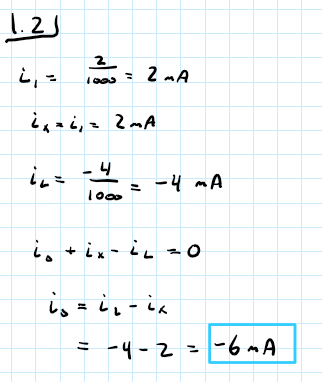 1.2)
i₁ = 2/1000 = 2 mA
iₓ = i₁ = 2 mA
i_L = -4/1000 = -4 mA
i₀ + iₓ - i_L = 0
i₀ = i_L - iₓ
= -4 - 2 = -6 mA